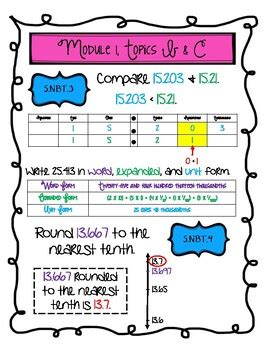 Module 1, Topics B & C
5.NBT.3
Compare 15.203 & 15.21.
15.203 < 15.21.
1 5 . 2 0 3
1 5 . 2 1
0 < 1
Write 25.413 in word, expanded, and unit form.
Word Form Twenty-five and four hundred thirteen thousandths
Expanded Form
Unit Form
Round 13.667 to the
nearest tenth.
5.NBT.4
13.667 rounded
to the nearest
tenth is 13.7.
13.7
13.65
13.6